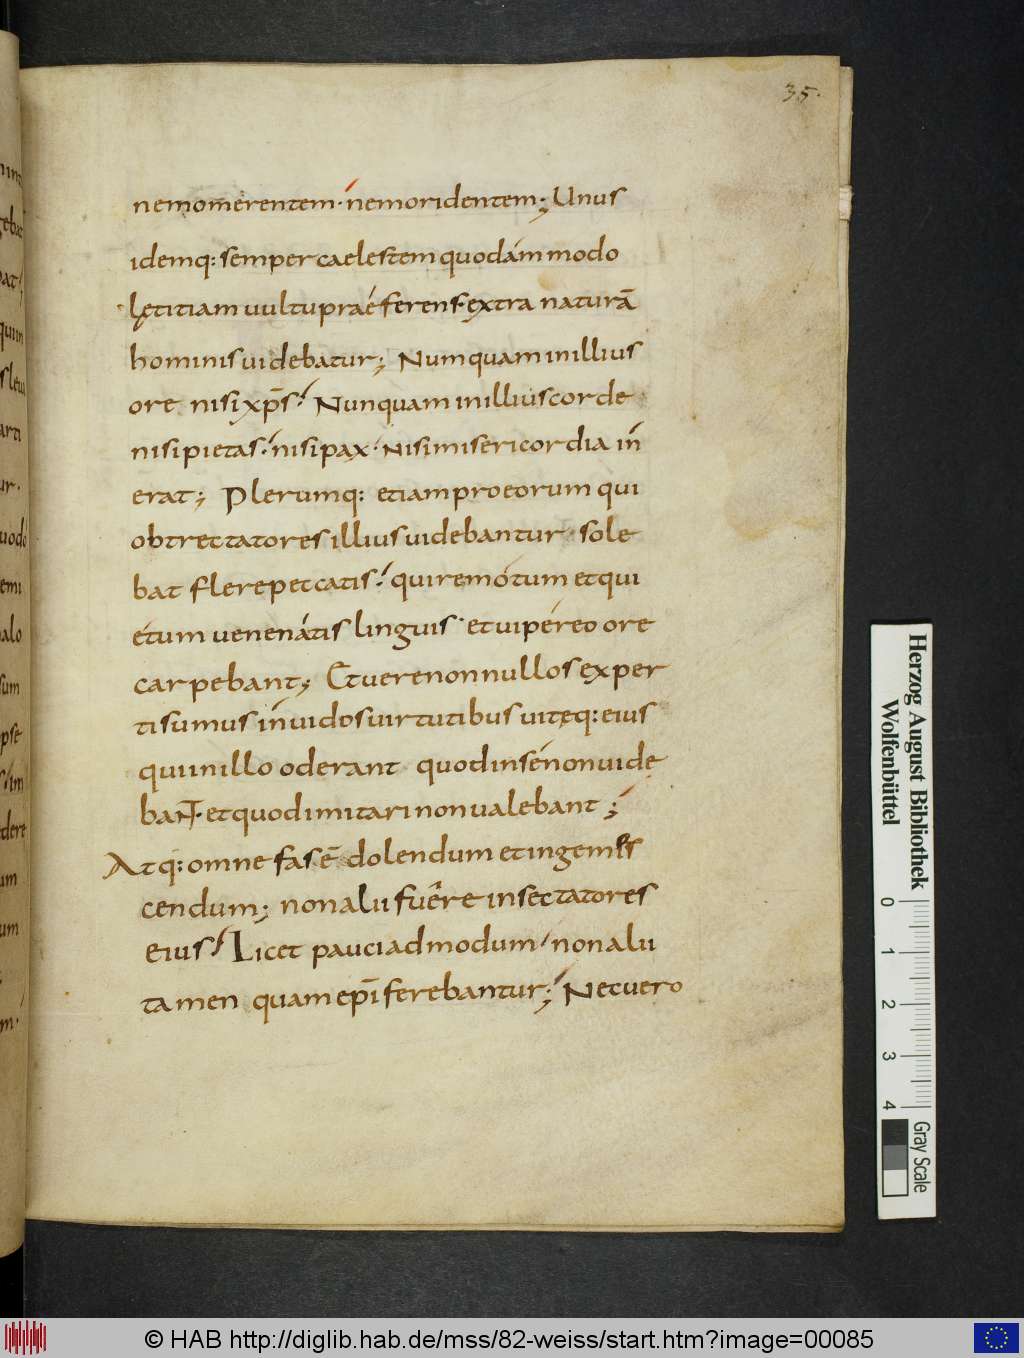 35.
nemomerentem · nemoridentem; Unus
idemq: semper caelestem quodám modo
lętitiam uultu praéferens · extra naturā
hominis uidebatur; Numquam in illius
ore nisi xp̄s · Nunquam in illius corde
nisi pietas · nisi pax · Nisi misericordia in
erat; Plerumq: etiam pro eorum qui
obtrectatores illius uidebantur · sole
bat flere peccatis · qui remótum et qui
étum uenenátis linguis · et uipéreo ore
carpebant; Et uere non nullos exper
ti sumus inuidos uirtutibus uitęq: eius
qui in illo oderant quod in sé non uide
bant · et quod imitari non ualebant;
Atq: omne fas ē dolendum et ingemis
cendum; non alii fuêre insectatores
eius · Licet pauci admodum · non alii
tamen quam ep̄i ferebantur; Nec uero
Herzog August Bibliothek
Wolfenbüttel
0 1 2 3 4
Gray Scale
© HAB http://diglib.hab.de/mss/82-weiss/start.htm?image=00085